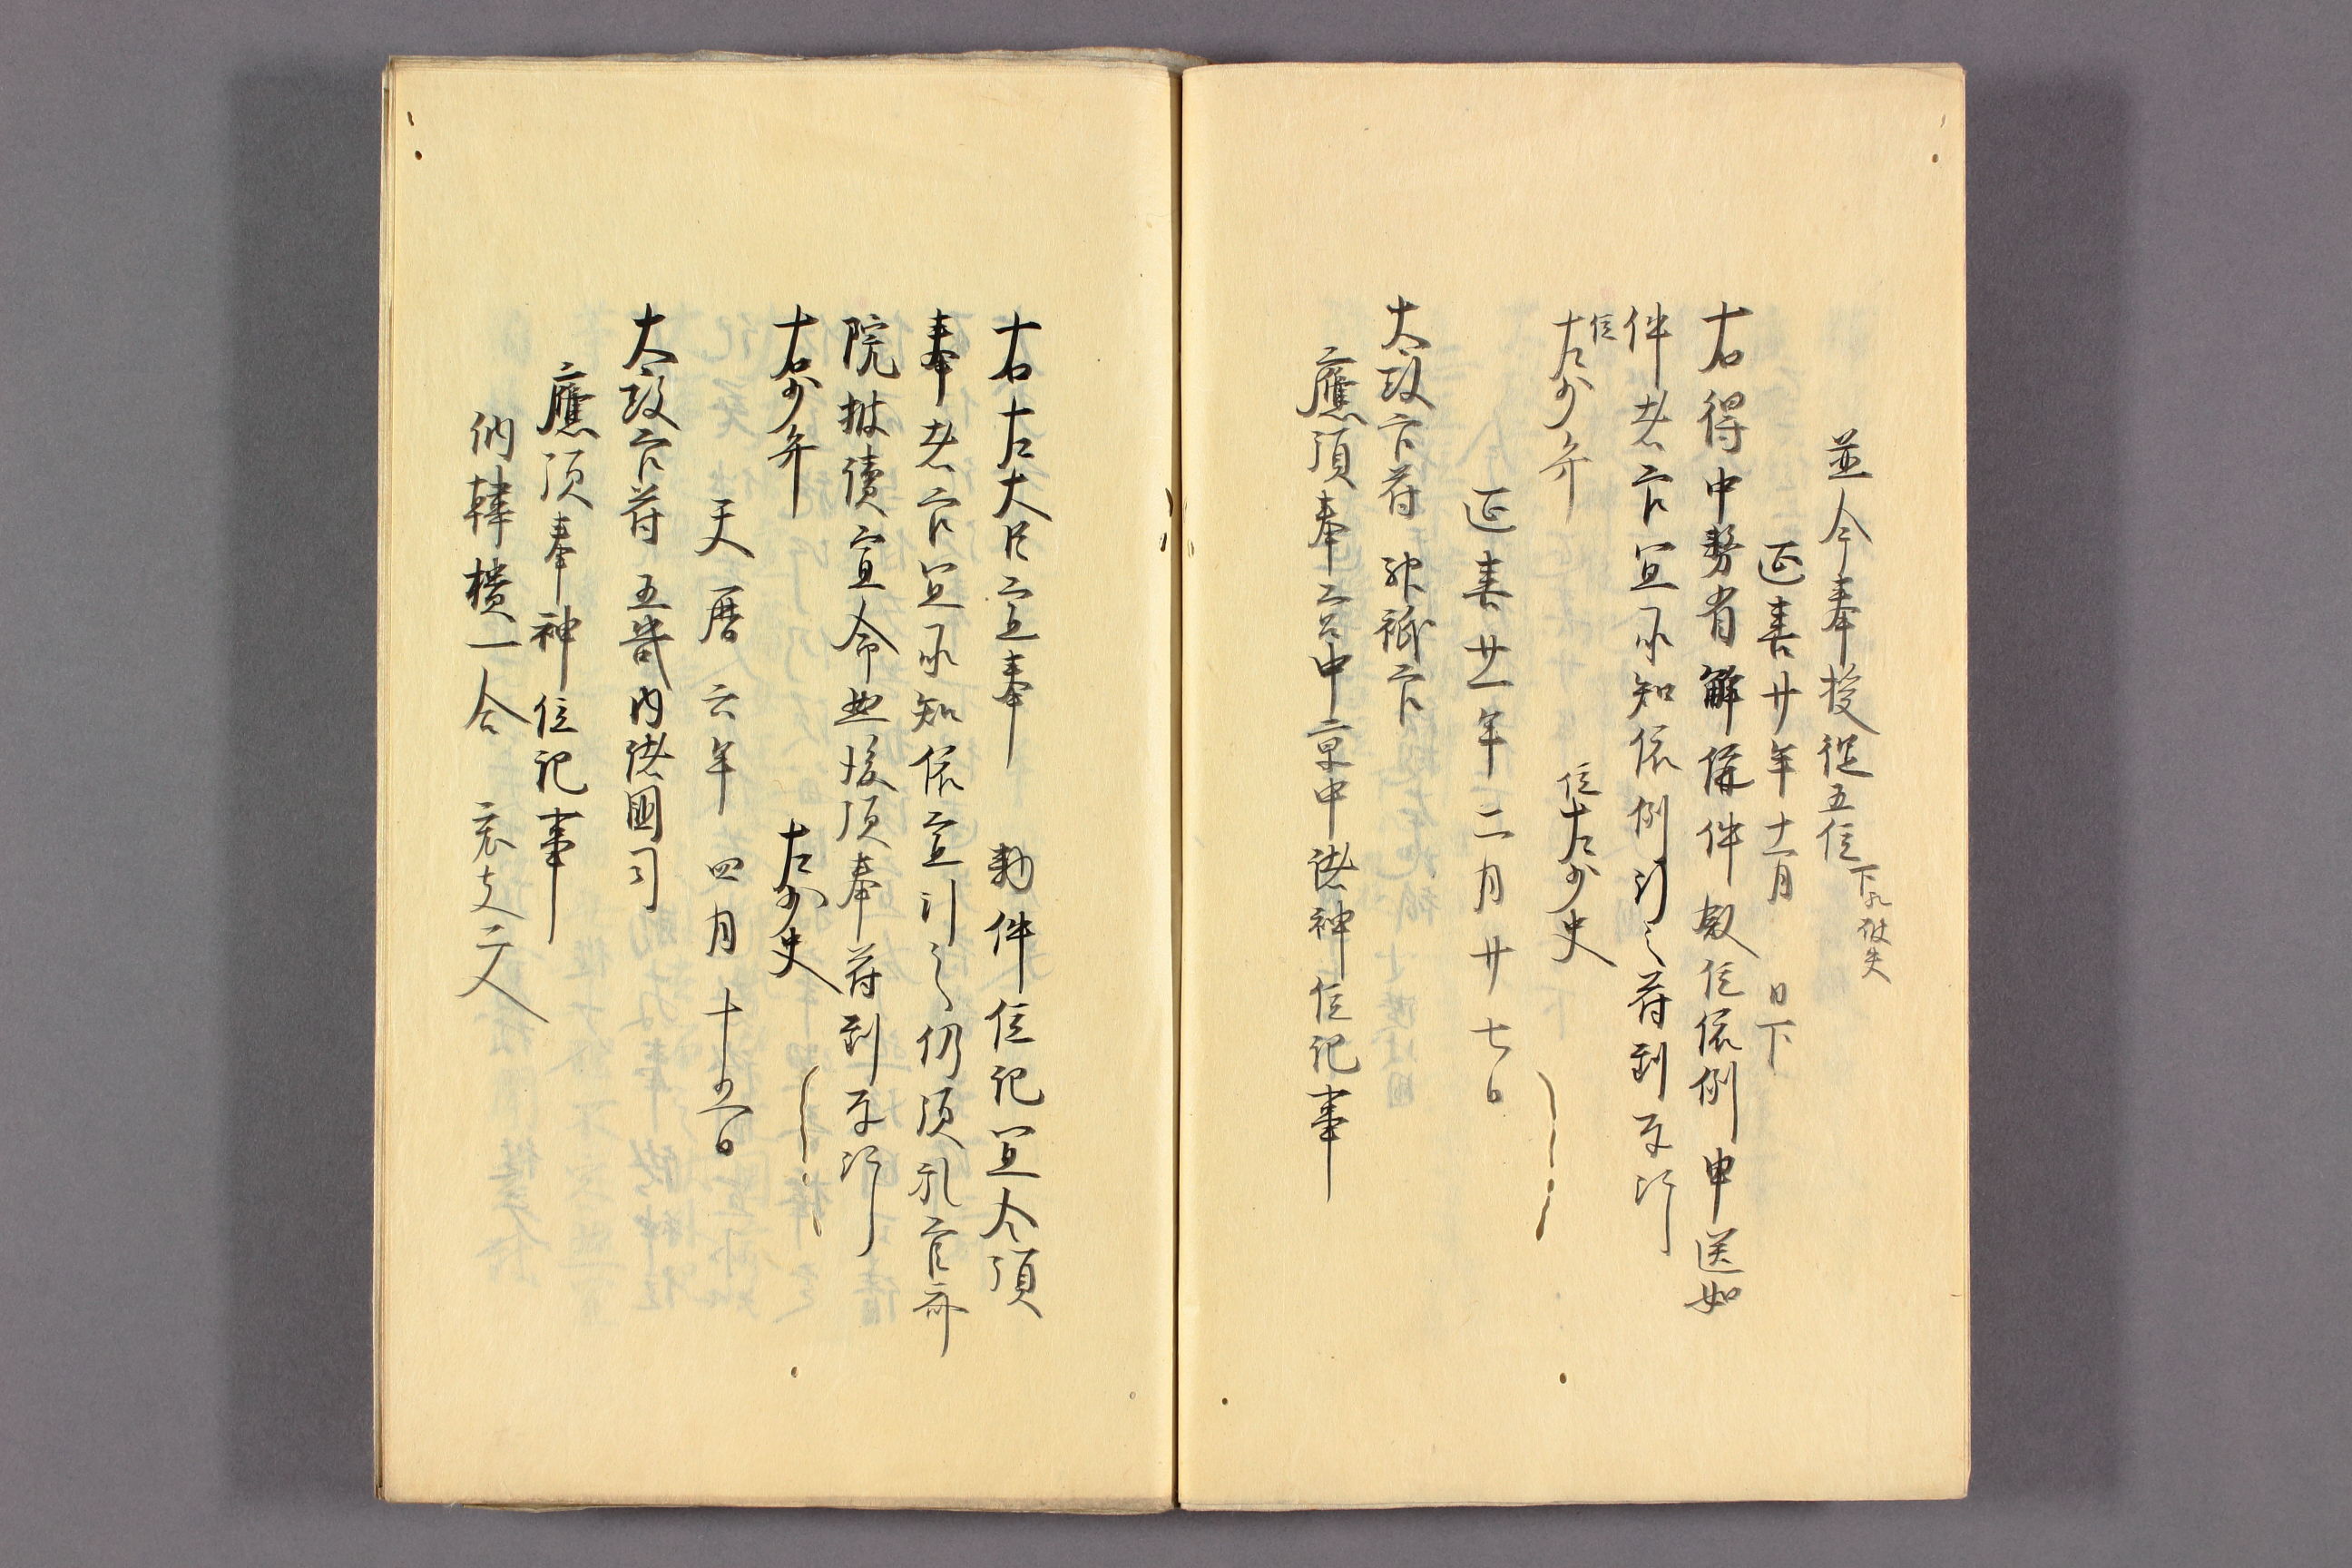 並今奉授従五位下
延喜廿年十一月 日下
右得中務省解偁件叙位依例申送如
件者官宜承知依例行之符到奉行
位左少弁 位左少史
延喜廿一年二月廿七日
太政官符 神祇官
應頒奉宮中京中諸神位記事
右左大臣宣奉 勅件位記宜令頒
奉者官宜承知依宣行之仍須礼官斎
院披読宣命然後頒奉符到奉行
右少弁 左少史
天暦六年四月十五日
太政官符 五畿内諸國司
應頒奉神位記事
納韓櫃一合 夫二人